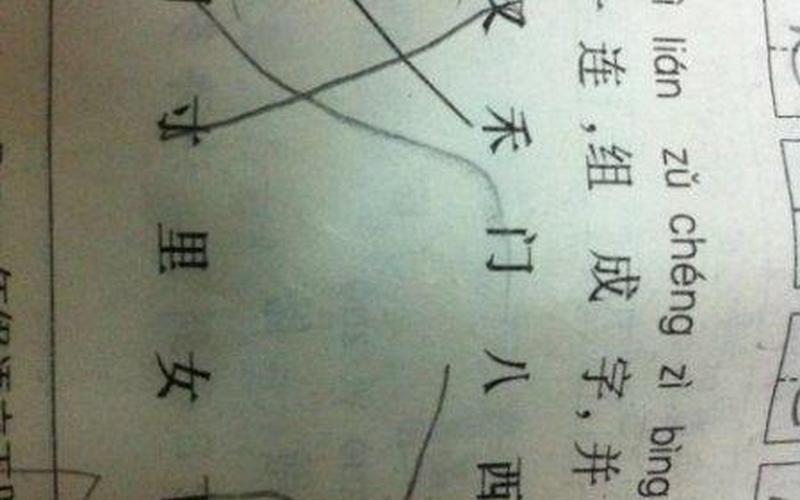 lián zǔ chéng zì bìng
连,组成字,并
禾 门 八 西
寸 里 女